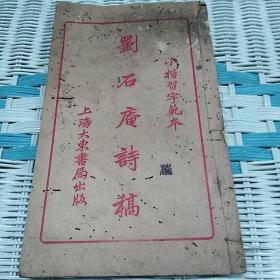 小楷習字範本
劉石庵詩稿
上海大東書局出版